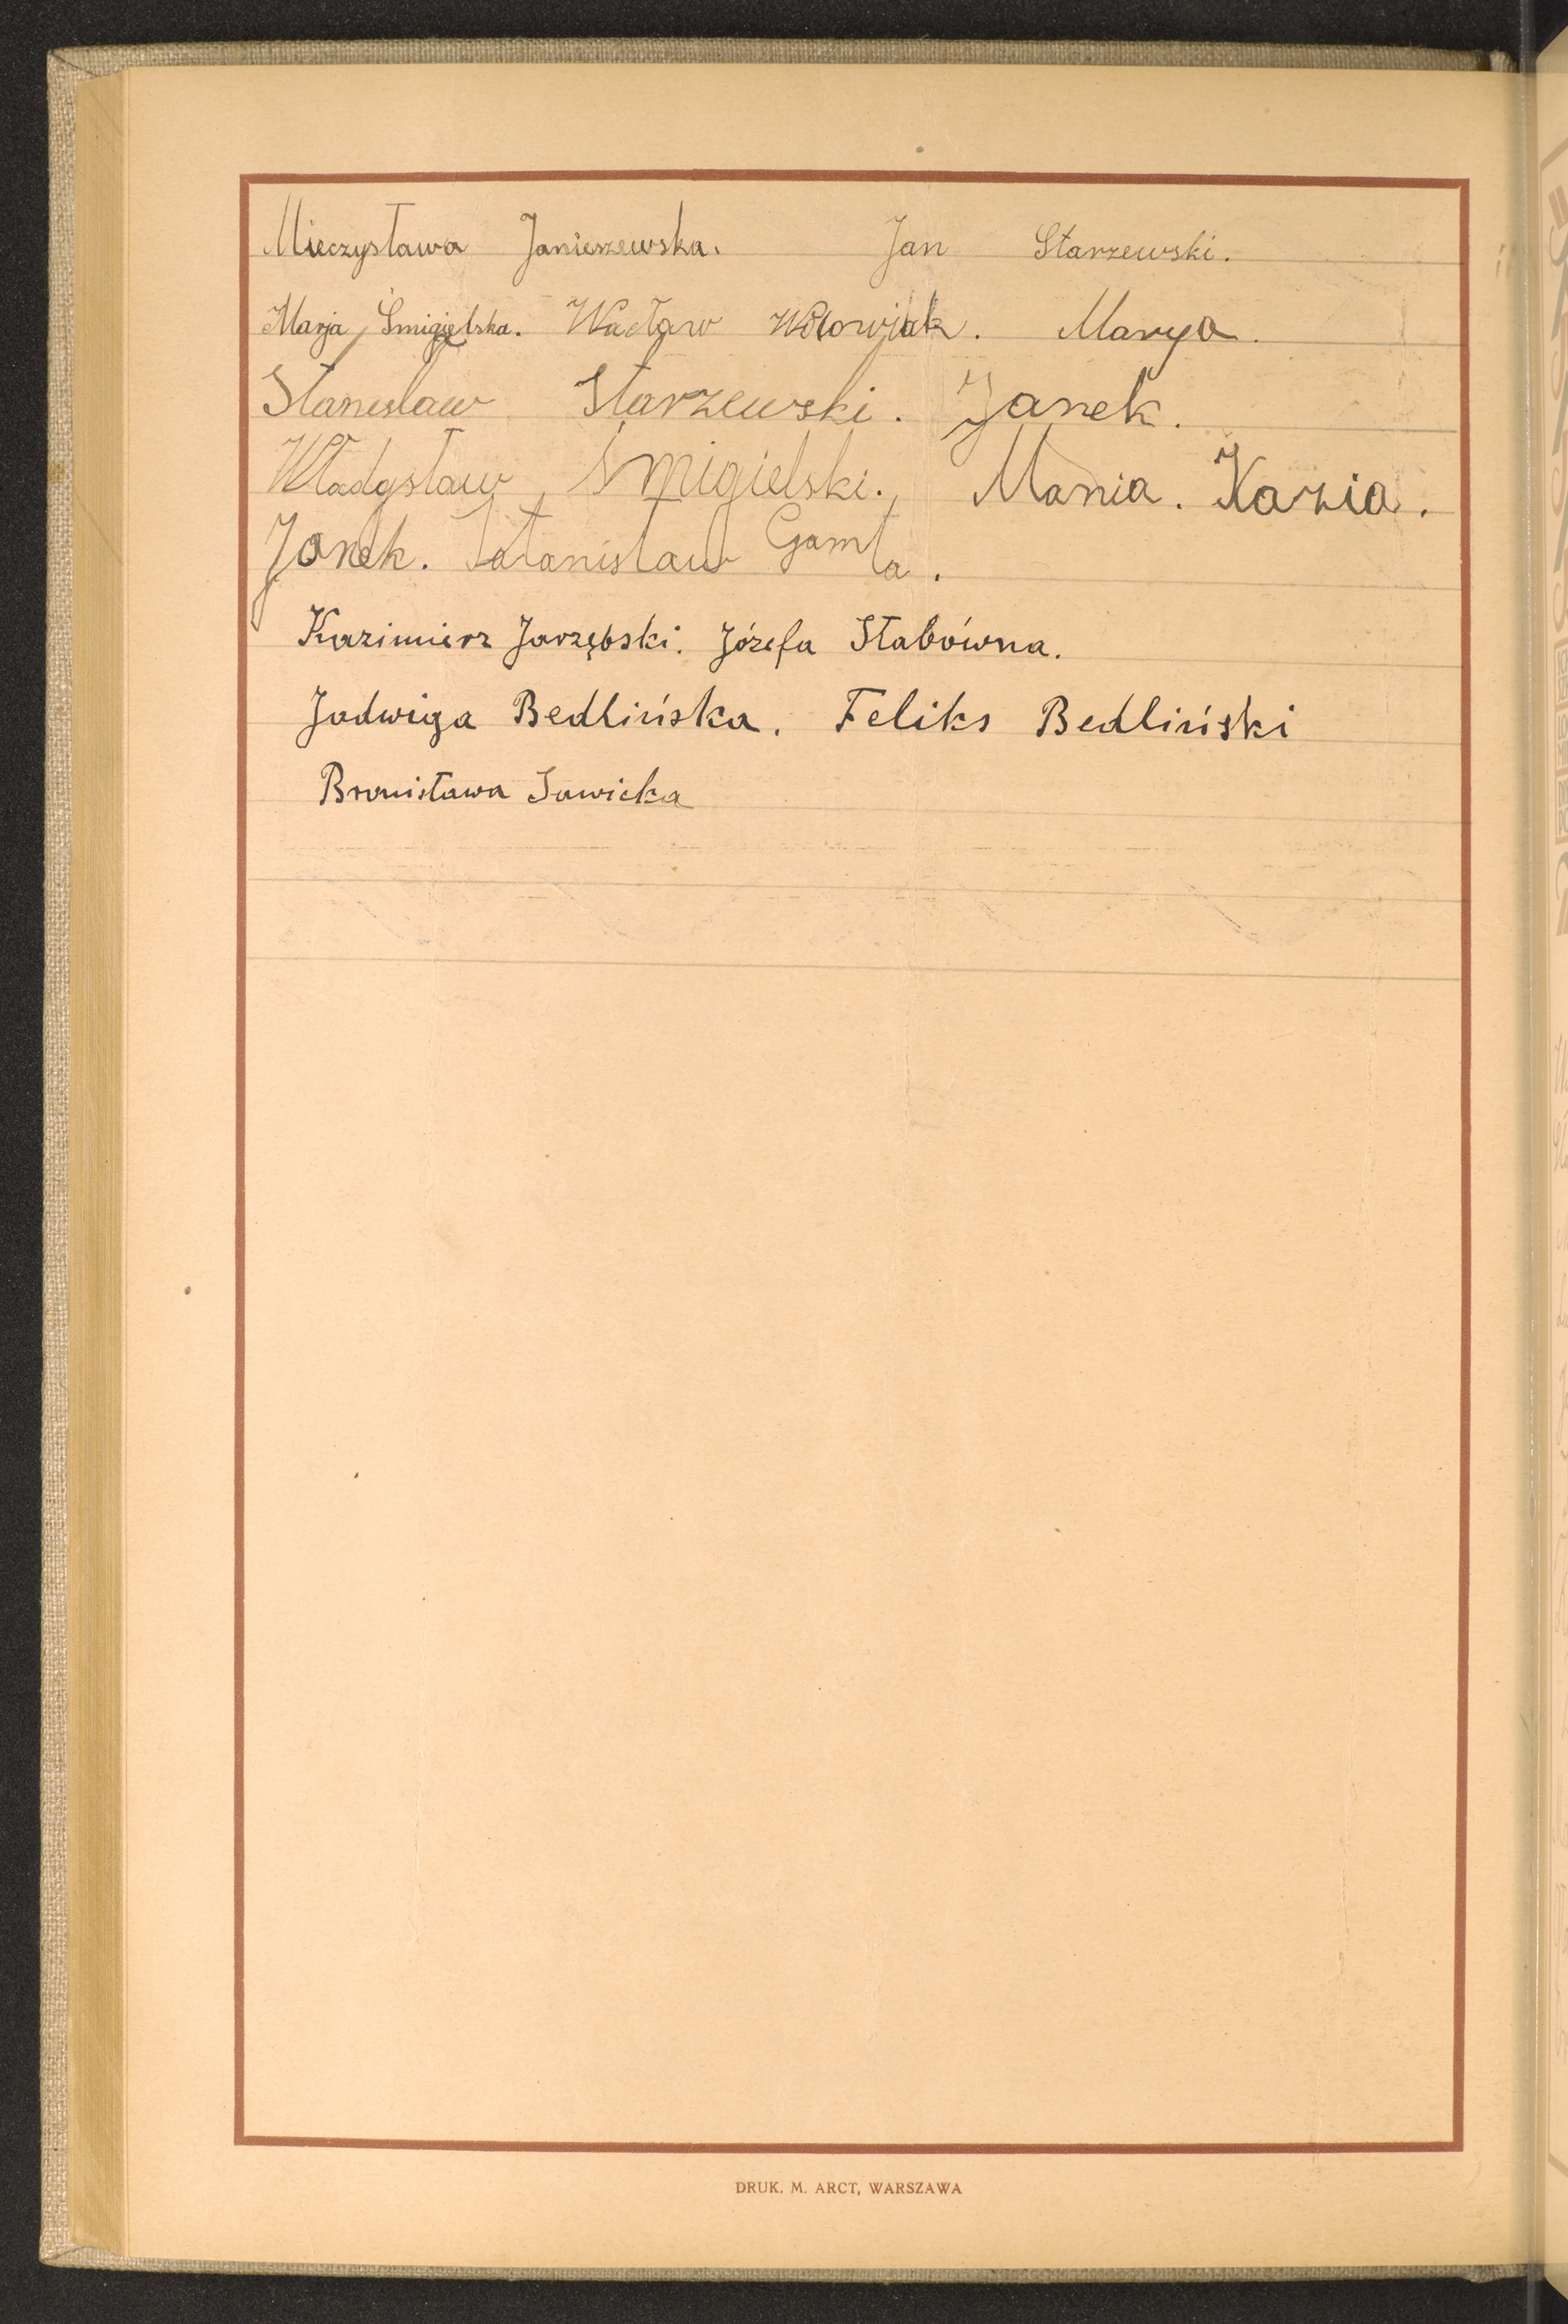 Mieczysława Janieszewska. Jan Starzewski.
Marja Śmigielska. Wacław Wdowjak. Marya.
Stanesław Starzewski. Janek.
Władysław Śmigielski. Mania. Kazia.
Janek. Satanisław Gamła.
Kazimierz Jarzębski. Józefa Słabówna.
Jadwiga Bedlińska. Feliks Bedliński
Bronisława Sawicka
DRUK. M. ARCT, WARSZAWA